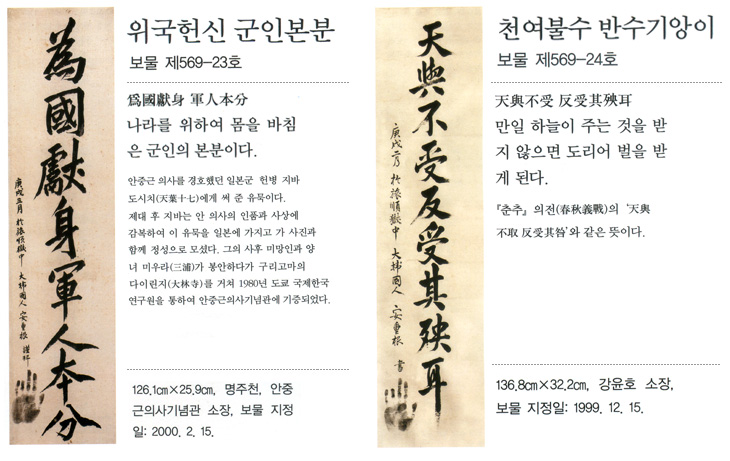 為國獻身軍人本分
庚戌三月 於旅順獄中 大韓國人 安重根 謹拜
위국헌신 군인본분
보물 제569-23호
爲國獻身 軍人本分
나라를 위하여 몸을 바침
은 군인의 본분이다.
안중근 의사를 경호했던 일본군 헌병 지바
도시치(天葉十七)에게 써 준 유묵이다.
제대 후 지바는 안 의사의 인품과 사상에
감복하여 이 유묵을 일본에 가지고 가 사진과
함께 정성으로 모셨다. 그의 사후 미망인과 양
녀 미우라(三浦)가 봉안하다가 구리고마의
다이린지(大林寺)를 거쳐 1980년 도쿄 국제한국
연구원을 통하여 안중근의사기념관에 기증되었다.
126.1㎝×25.9㎝, 명주천, 안중
근의사기념관 소장, 보물 지정
일: 2000. 2. 15.
天與不受反受其殃耳
庚戌二月 於旅順獄中 大韓國人 安重根 書
천여불수 반수기앙이
보물 제569-24호
天與不受 反受其殃耳
만일 하늘이 주는 것을 받
지 않으면 도리어 벌을 받
게 된다.
『춘추』의전(春秋義戰)의 ‘天與
不取 反受其咎’와 같은 뜻이다.
136.8㎝×32.2㎝, 강윤호 소장,
보물 지정일: 1999. 12. 15.